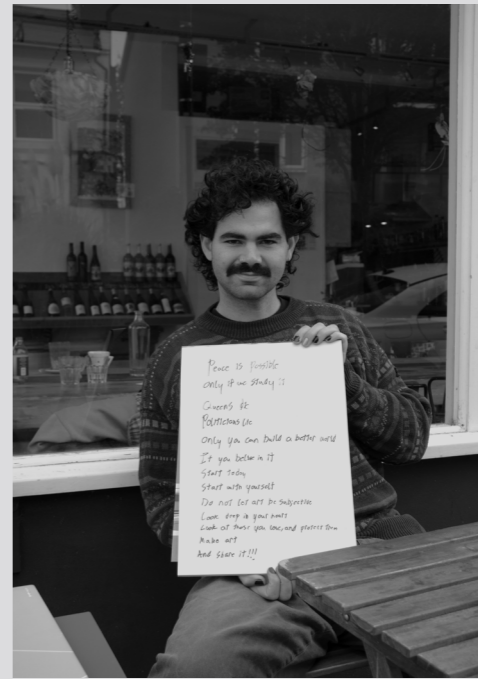 Peace is possible
only if we study it
Queens
Politicians lie
only you can build a better world
If you believe in it
Start Today
Start with yourself
Do not let art be subjective
Look deep in your heart
Look at those you love, and protect them
Make art
And share it!!!